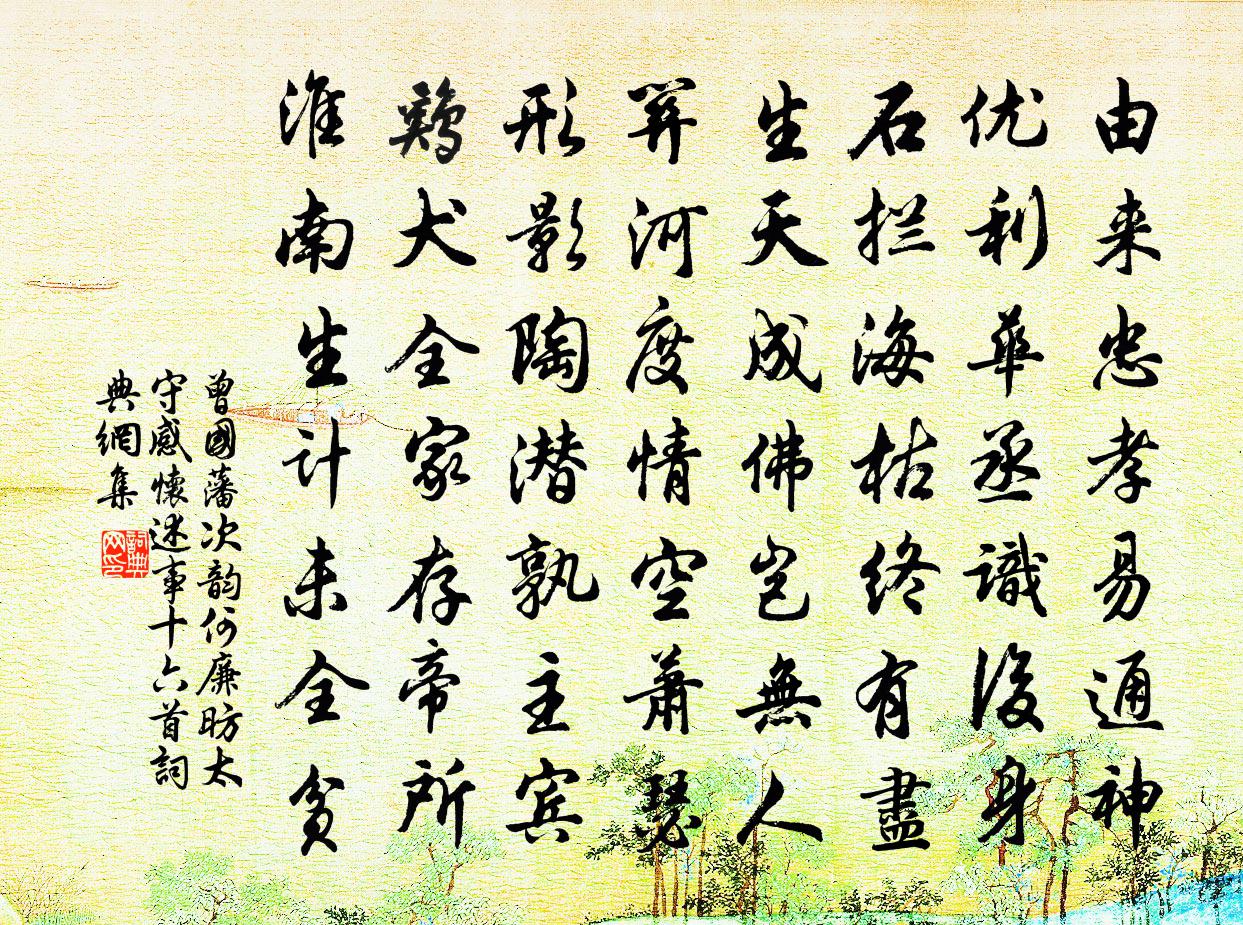 由来忠孝易通神
优利華丞識後身
石拦海枯終有盡
生天成佛岂無人
河度情空蕭瑟
形影陶潜孰主宾
鷄犬全家存帝所
淮南生计未全贫
曾國藩次韵何廉昉太
守感懷述事十六首詞
典網集
詞典
网印